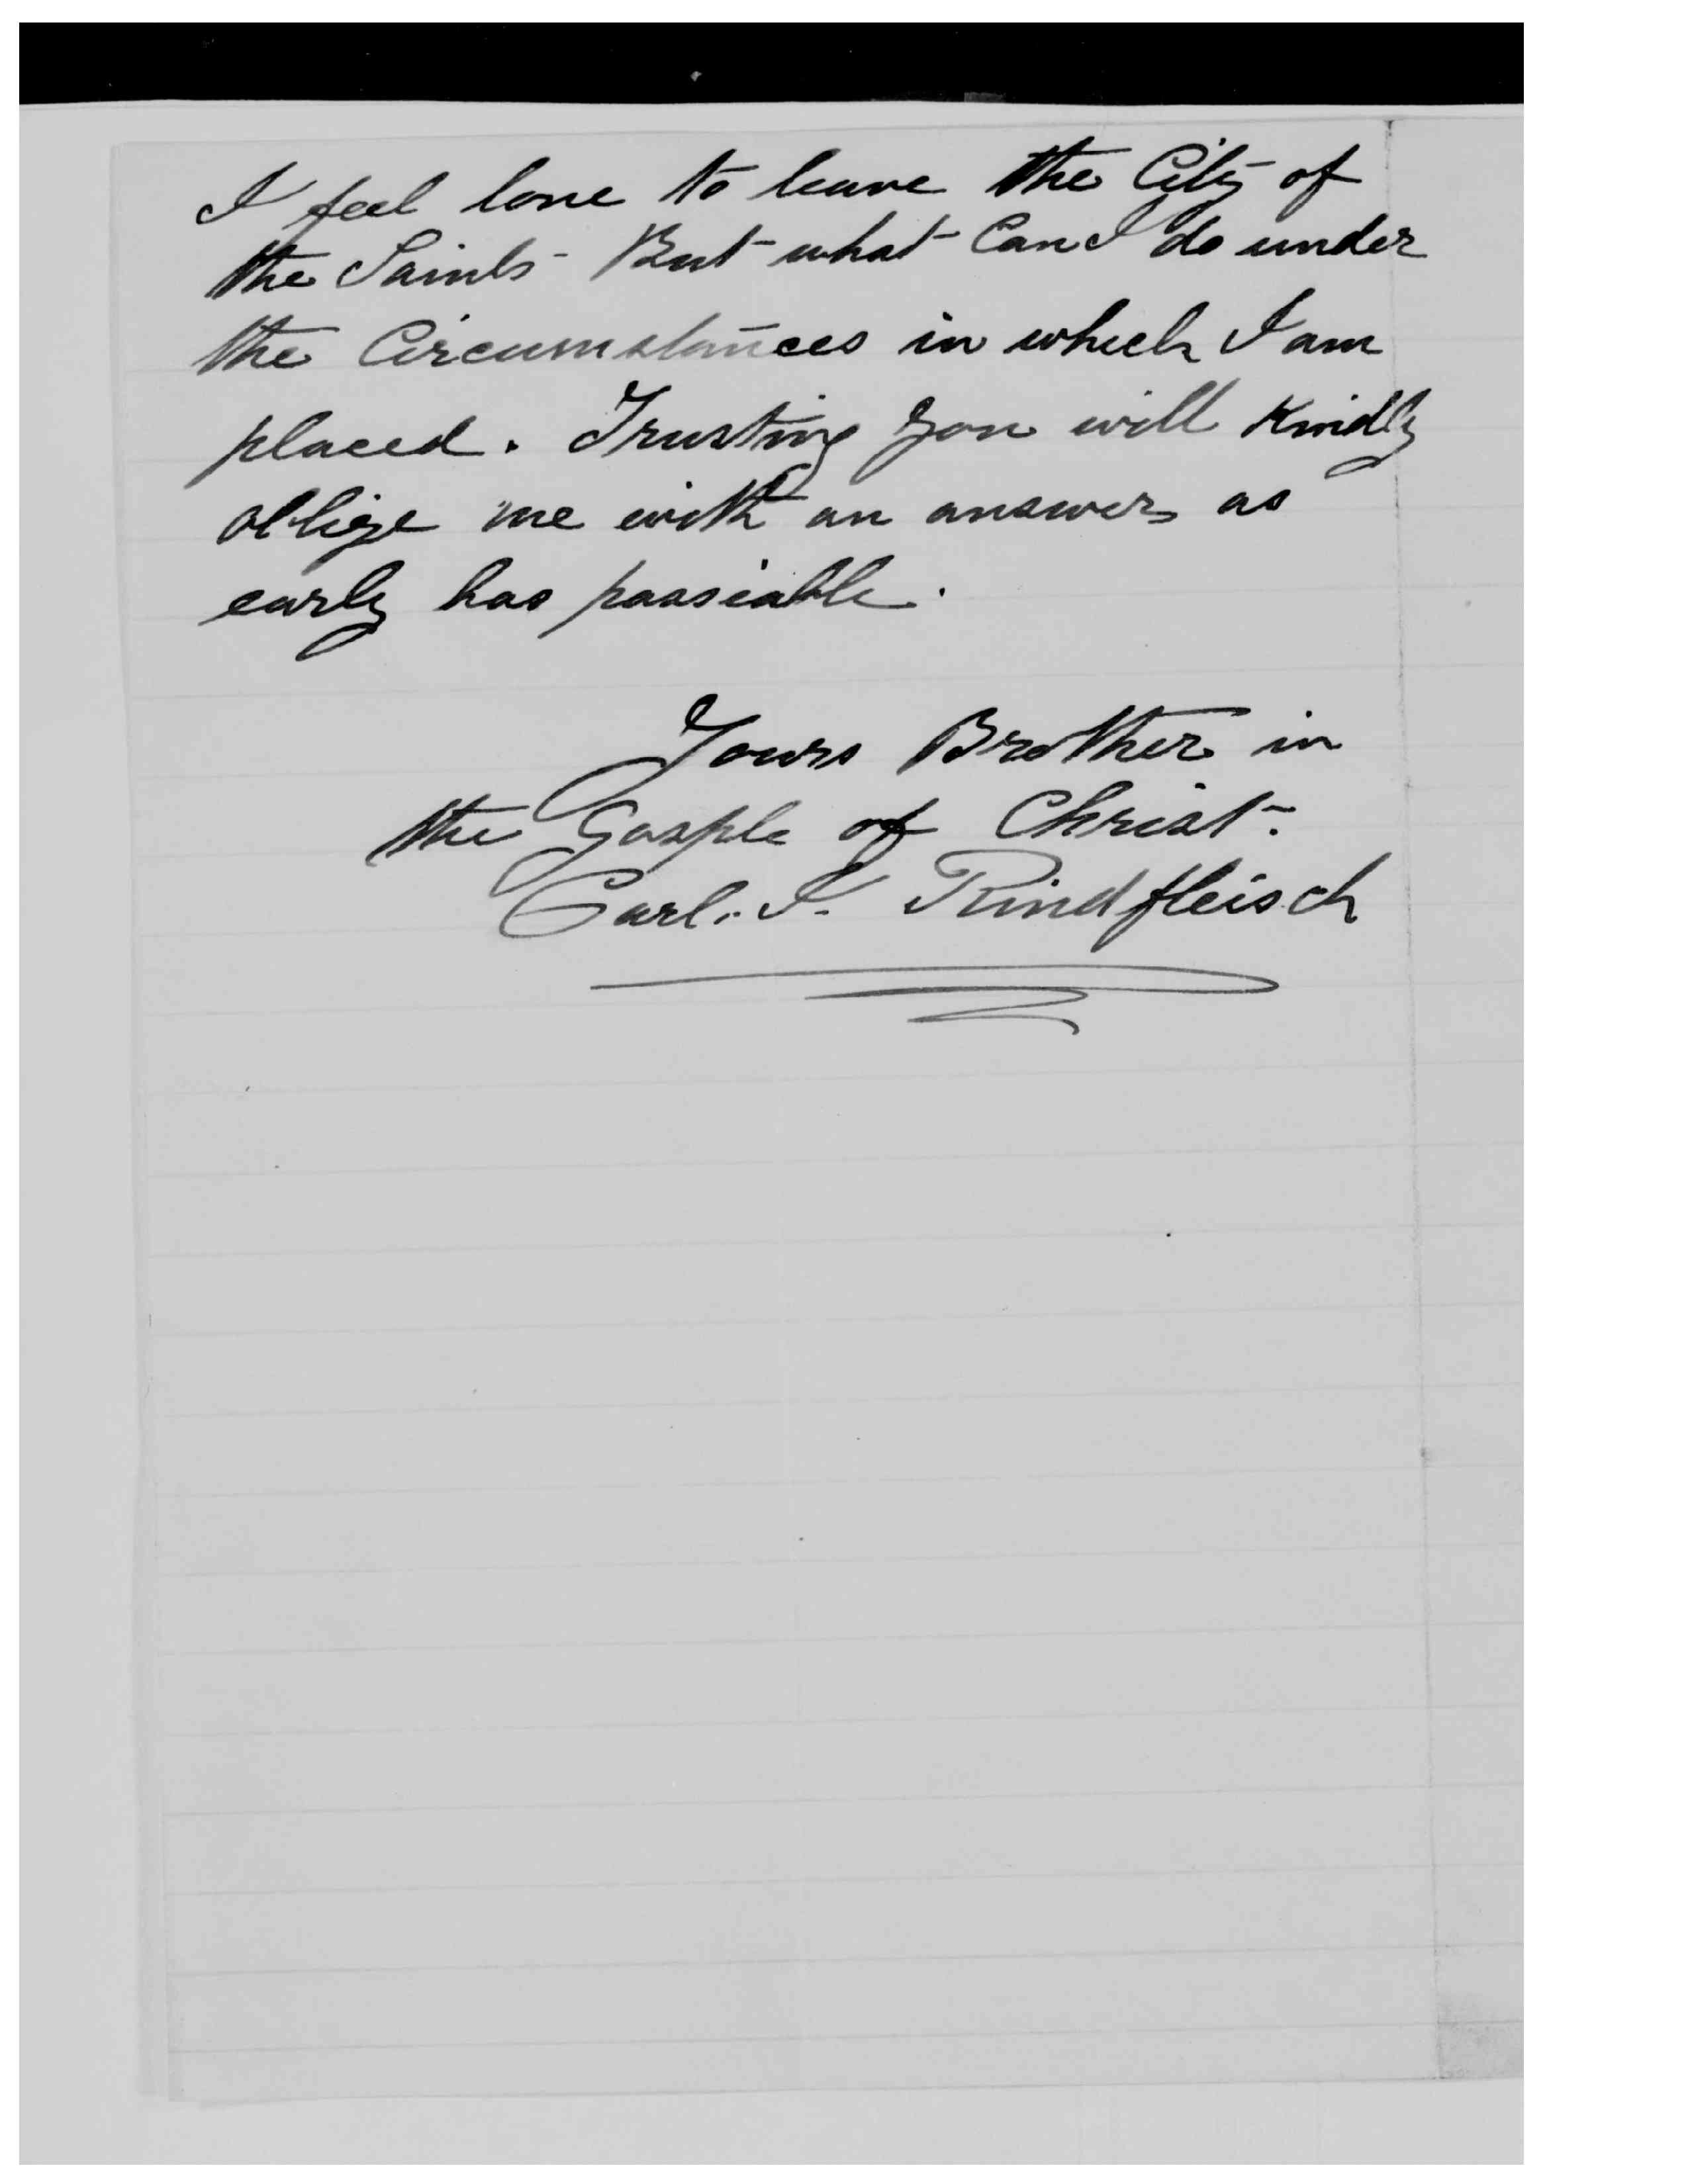 I feel lone to leave the City of
the Saints - But what Can I do under
the Circumstances in which I am
placed. Trusting you will Kindly
oblige me with an answer as
early has possiable.
Yours Brother in
the Gosple of Christ.
Carl. I. Rindfleisch